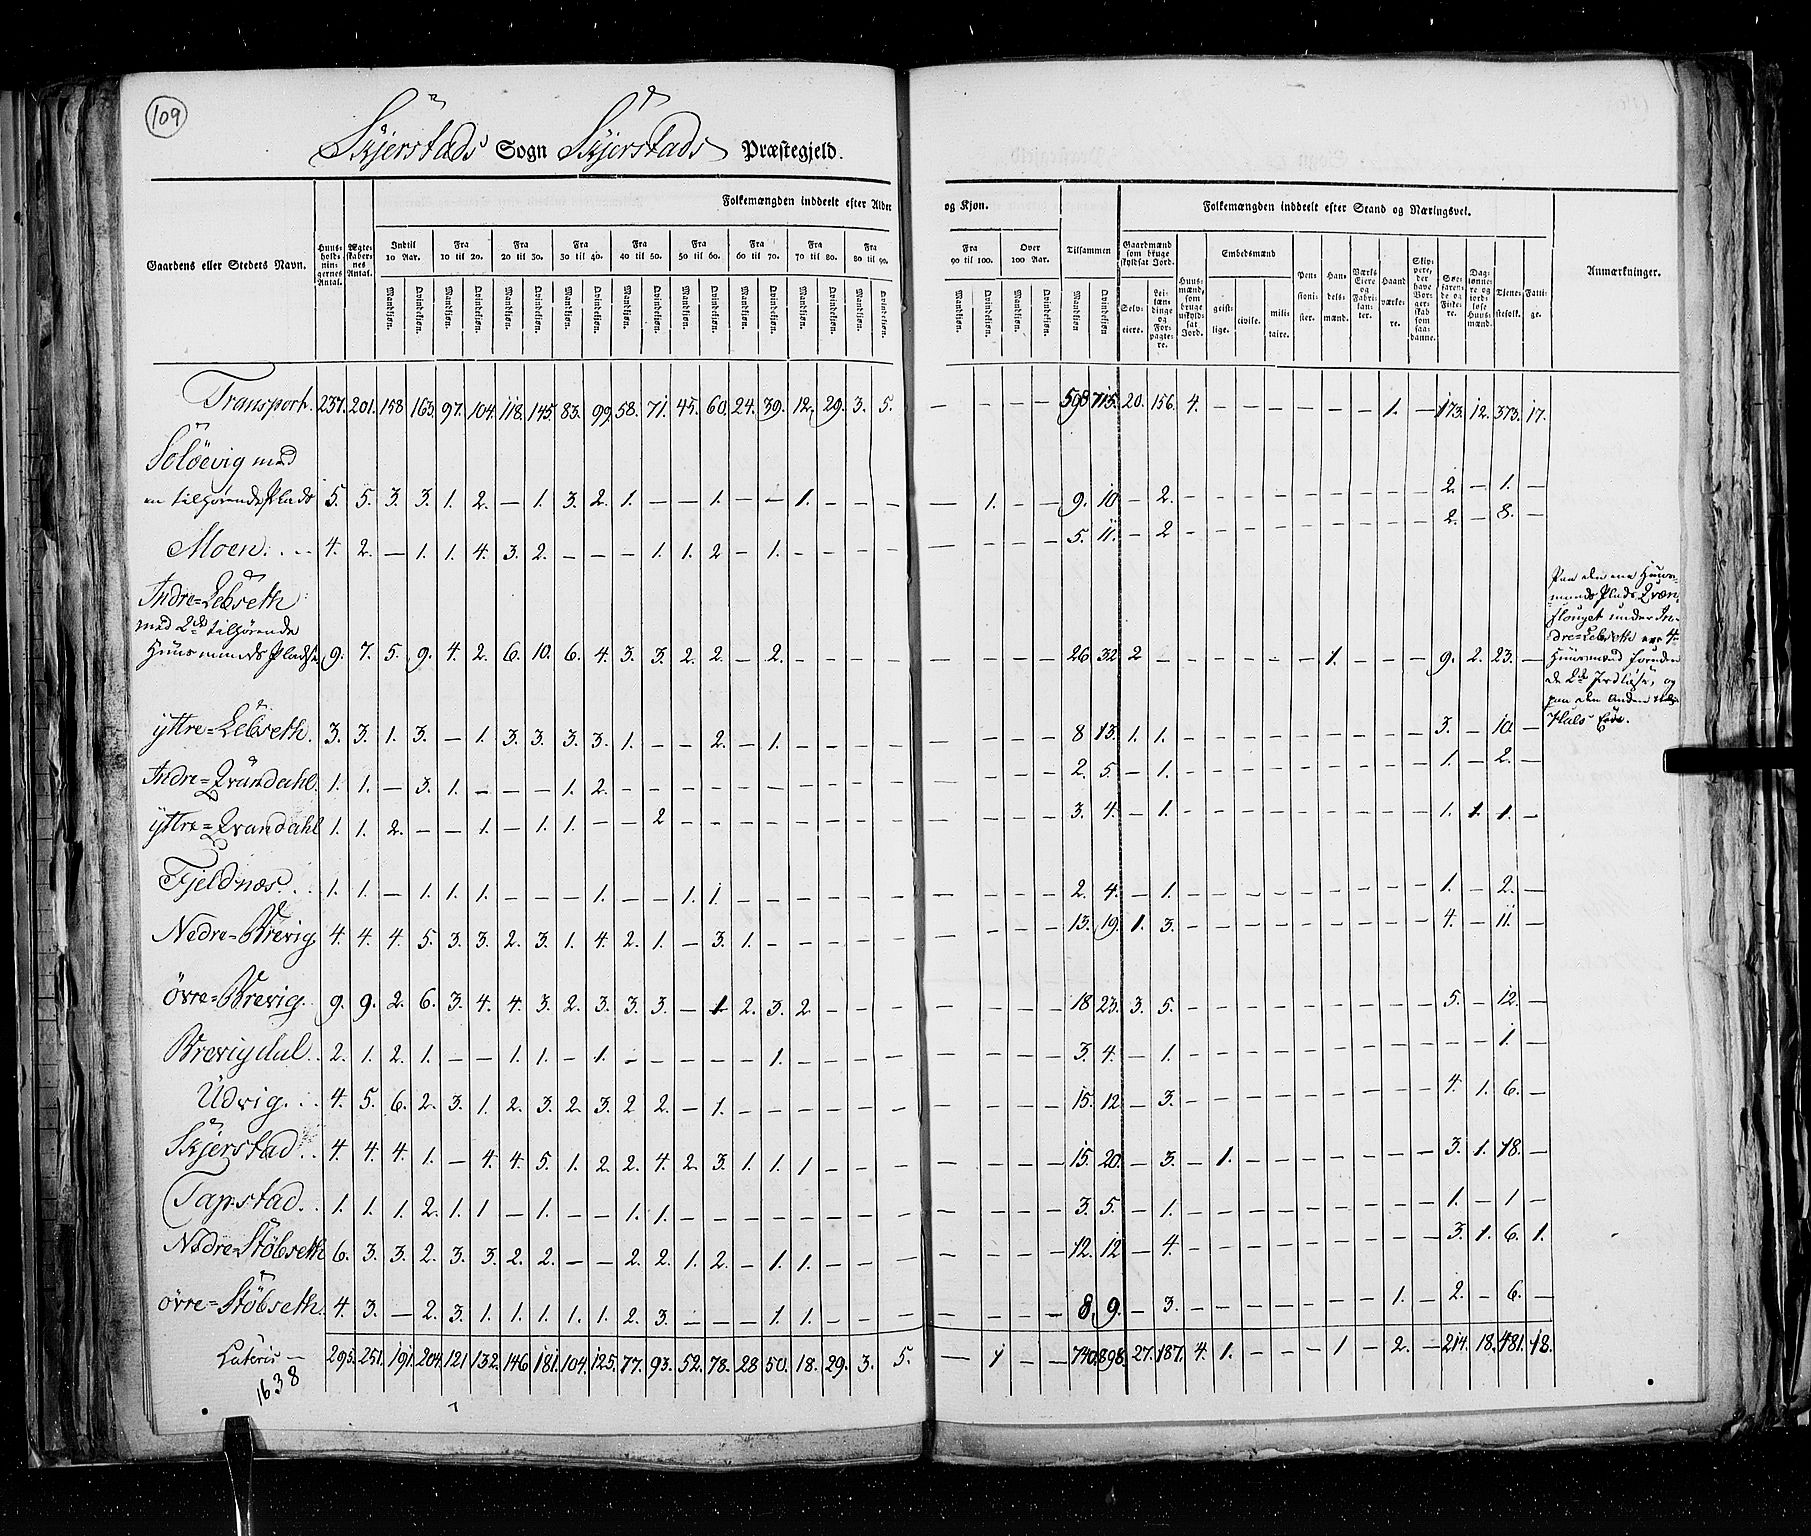 109
Skjerstads Sogn Skjerstads Præstegjeld.
Gaardens eller Stedets Navn. Huus-holdnin-gernes Antal. Ægte-skaber-nes Antal. Folkemængden inddeelt efter Alder og Kjøn. Tilsammen Folkemængden inddeelt efter Stand og Næringsvei. Anmærkninger.
Indtil 10 Aar. Fra 10 til 20. Fra 20 til 30. Fra 30 til 40. Fra 40 til 50. Fra 50 til 60. Fra 60 til 70. Fra 70 til 80. Fra 80 til 90. Fra 90 til 100. Over 100 Aar.
Mandkjøn. Qvindekjøn.
Gaardmænd som bruge skyldsat Jord. Selv-eiere. Lei-lændinge og For-pagtere. Huus-mænd, som bruge uskyld-sat Jord. Embedsmænd geist-lige. civile. mili-taire. Pen-sioni-ster. Han-dels-mænd. Værks Eiere og Fabri-kan-ter. Haand-værke-re. Søe-farende og Fiske-re. Dag-lønne-re og jord-løse Huus-mænd. Tjene-stefolk. Fatti-ge.
Transport. 237. 201. 158 163. 97. 104. 118. 145. 83. 99. 58. 71. 45. 60. 24. 39. 12. 29. 3. 5. — — — — 598 715. 20. 156. 4. — — — — — — 1. — 173. 12. 373. 17.
Solöevig med
en tilhørende Plads 5. 5. 3. 3. 1. 2. — 1. 3. 2. 1. — — 1. — — 1. — — — — 1. — — 9. 10 — 2. — — — — — — — — — 2. — 1. —
Moen. 4. 2. — 1. 1. 4. 3. 2. — — — 1. 1. 2 — 1. — — — — — — — — 5. 11. — 2 — — — — — — — — — 2. — 8. —
Indre=Lebseth
med 2de tilhørende
Huusmands Pladse 9. 7. 5. 9. 4. 2. 6. 10. 6. 4. 3. 3. 2. 2. — 2. — — — — — — — — 26 32 2 — — — — — — 1. — — — 9. 2. 23. —
Paa den ene Huus-
mands Plads
under In-
dre=Lebseth ere 4
Huusmænd foruden
de 2de Jordløse, og
paa den Anden
yttre=Lebseth. 3. 3. 1. 3. — 1. 3. 3. 3. 3. 1. — — 2. — 1. — — — — — — — — 8 13. 1. 1. — — — — — — — — — 3. — 10. —
Indre=Qvandahl. 1. 1. — 3. 1. — — — 1. 2. — — — — — — — — — — — — — — 2. 5. — 1. — — — — — — — — — 1. — 2. —
yttre=Qvandahl 1. 1. 2. — — 1. — 1. 1. — — 2 — — — — — — — — — — — — 3. 4. — 1. — — — — — — — — — 1. 1. 1. —
Fjeldnæs. 1. 1. — 1. 1. 1. — — — 1. — — 1. 1. — — — — — — — — — — 2. 4. — 1. — — — — — — — — — 1. — 2. —
Nedre=Brevig 4. 4. 4. 5. 3. 3. 2. 3. 1. 4. 2. 1. — 3. 1. — — — — — — — — — 13. 19. 1. 3. — — — — — — — — — 4. — 11. —
övre=Brevig. 9. 9. 2. 6. 3. 4. 4. 3. 2. 3. 3. 3. — 1 2. 3. 2 — — — — — — — 18 23. 3. 5. — — — — — — — — — 5. — 12. —
Brevigdal. 2. 1. 2. 1. — — 1. 1. — 1. — — — — — 1. — — — — — — — — 3. 4. — 1. — — — — — — — — — — — 1. —
Udvig. 4. 5. 6. 2. 3. 1. 2. 3. 2. 3. 2 2. — 1. — — — — — — — — — — 15. 12 — 3. — — — — — — — — — 4. 1. 6. —
Skjerstad. 4. 4. 4. 1. — 4. 4. 5. 1. 2. 2. 4. 2. 3. 1. 1. 1 — — — — — — — 15. 20. — 3. — 1. — — — — — — — 3. 1. 18. —
Tapstad. 1. 1. 1. 2. 1. 1 — 1. — — 1. 1. — — — — — — — — — — — — 3. 5. — 1. — — — — — — — — — 1. — 1 —
Nedre=Stöbseth 6. 3. 3. 2. 3. 3. 2. 2. — — 2. 2. 1. 2. — 1. 1. — — — — — — — 12. 12 — 4. — — — — — — — — — 3. 1. 6. 1.
övre=Stöbseth. 4. 3. — 2. 3. 1. 1. 1. 1. 1. 2. 3. — — — 1. 1. — — — — — — — 8. 9. — 3. — — — — — — — 1. — 2. — 6. —
Lateris — 295. 251. 191. 204. 121 132. 146 181. 104. 125. 77. 93. 52. 78. 28 50. 18. 29. 3. 5. — 1 — — 740. 898. 27. 187. 4. 1. — — — 1 — 2. — 214. 18. 481. 18.
1638